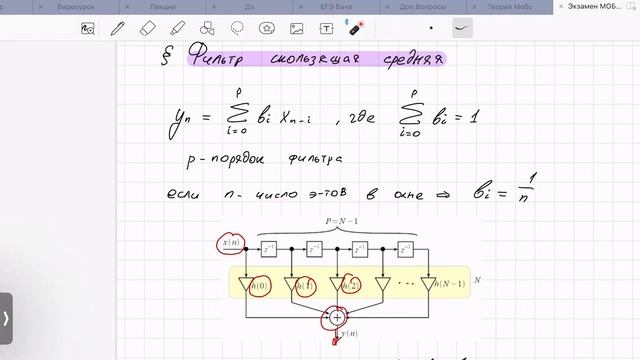 Видеоурок Лекции Дз ЕГЭ Ваче Доп Вопросы Теория Мобс Экзамен МОБ...
§ Фильтр скользящая средняя
yₙ = ∑ᵢ₌₀ᵖ bᵢ xₙ₋ᵢ , где ∑ᵢ₌₀ᵖ bᵢ = 1
p - порядок фильтра
если n - число э-тов в окне ⇒ bᵢ = 1/n
P = N − 1
x(n) z⁻¹ z⁻¹ z⁻¹ z⁻¹
h(0) h(1) h(2) ··· h(N−1) N
+
y(n)